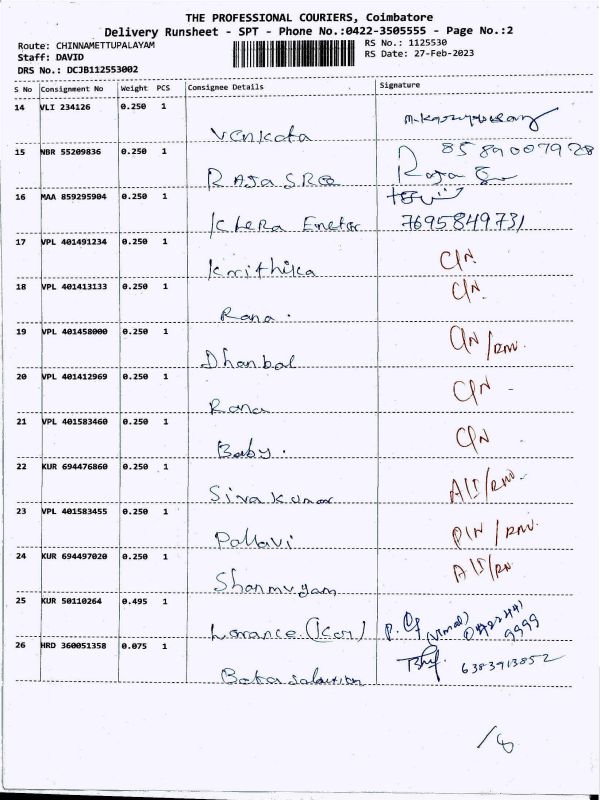 THE PROFESSIONAL COURIERS, Coimbatore
Delivery Runsheet - SPT - Phone No.:0422-3505555 - Page No.:2
Route: CHINNAMETTUPALAYAM
RS No.: 1125530
Staff: DAVID
RS Date: 27-Feb-2023
DRS No.: DCJB112553002
S No Consignment No Weight PCS Consignee Details Signature
14 VLI 234126 0.250 1
Venkata
15 NBR 55209836 0.250 1 8589007928
RAJASREE Raja
16 MAA 859295904 0.250 1
7695849731
17 VPL 401491234 0.250 1 C/N
Krithika
18 VPL 401413133 0.250 1 C/N
Rana.
19 VPL 401458000 0.250 1 C/N/RMV.
Dhanbal
20 VPL 401412969 0.250 1 C/N -
Rana
21 VPL 401583460 0.250 1 C/N
Baby.
22 KUR 694476860 0.250 1 /RMV.
Sivakumar
23 VPL 401583455 0.250 1 P/N / RMV.
Pallavi
24 KUR 694497020 0.250 1
Shanmugam
25 KUR 50110264 0.495 1
Lorance 9999
26 HRD 360051358 0.075 1 6383913852
/8